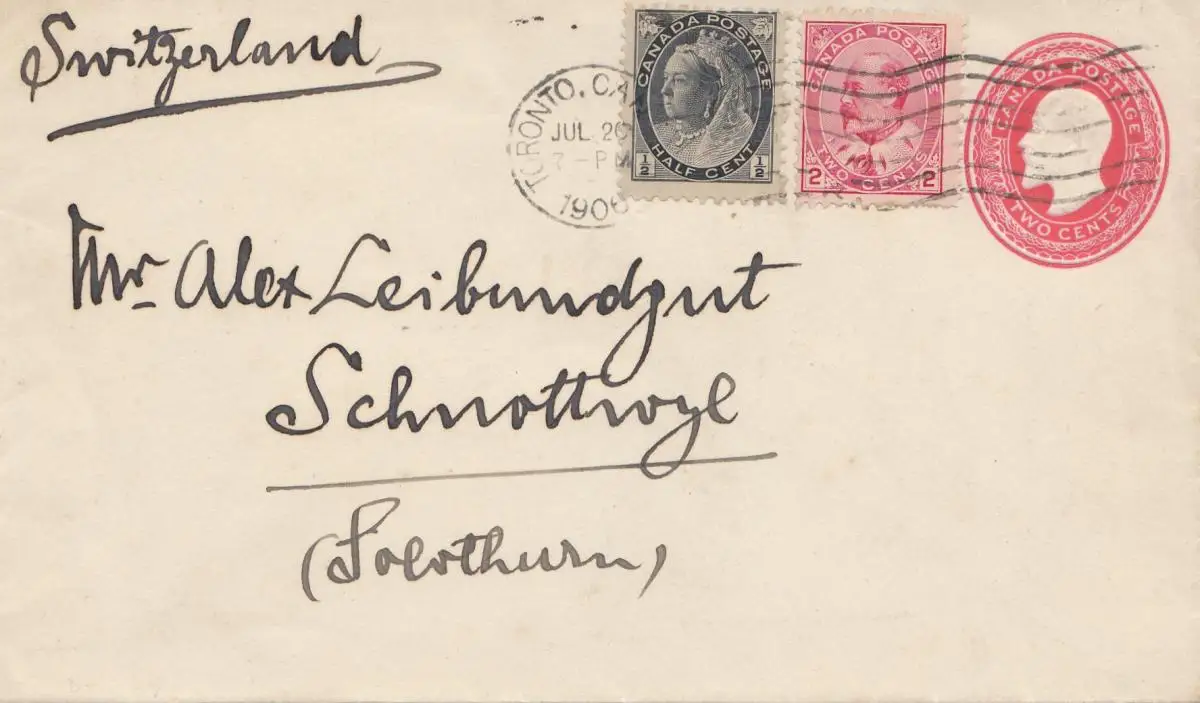 Switzerland
CANADA POSTAGE
½ HALF CENT ½
CANADA POSTAGE
2 TWO CENTS 2
CANADA POSTAGE
TWO CENTS
TORONTO, CA
JUL 26
PM
1906
Mr. Alex Leibundgut
Schnottwyl
(Solothurn)